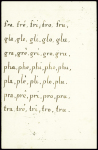 fra, fré, fri, fro, fru,
gla, gle, gli, glo, glu,
gra, gré, gri, gro, gru,
pha, phe, phi, pho, phu,
pla, plé, pli, plo, plu,
pra, pré, pri, pro, pru,
tra, tré, tri, tro, tru,